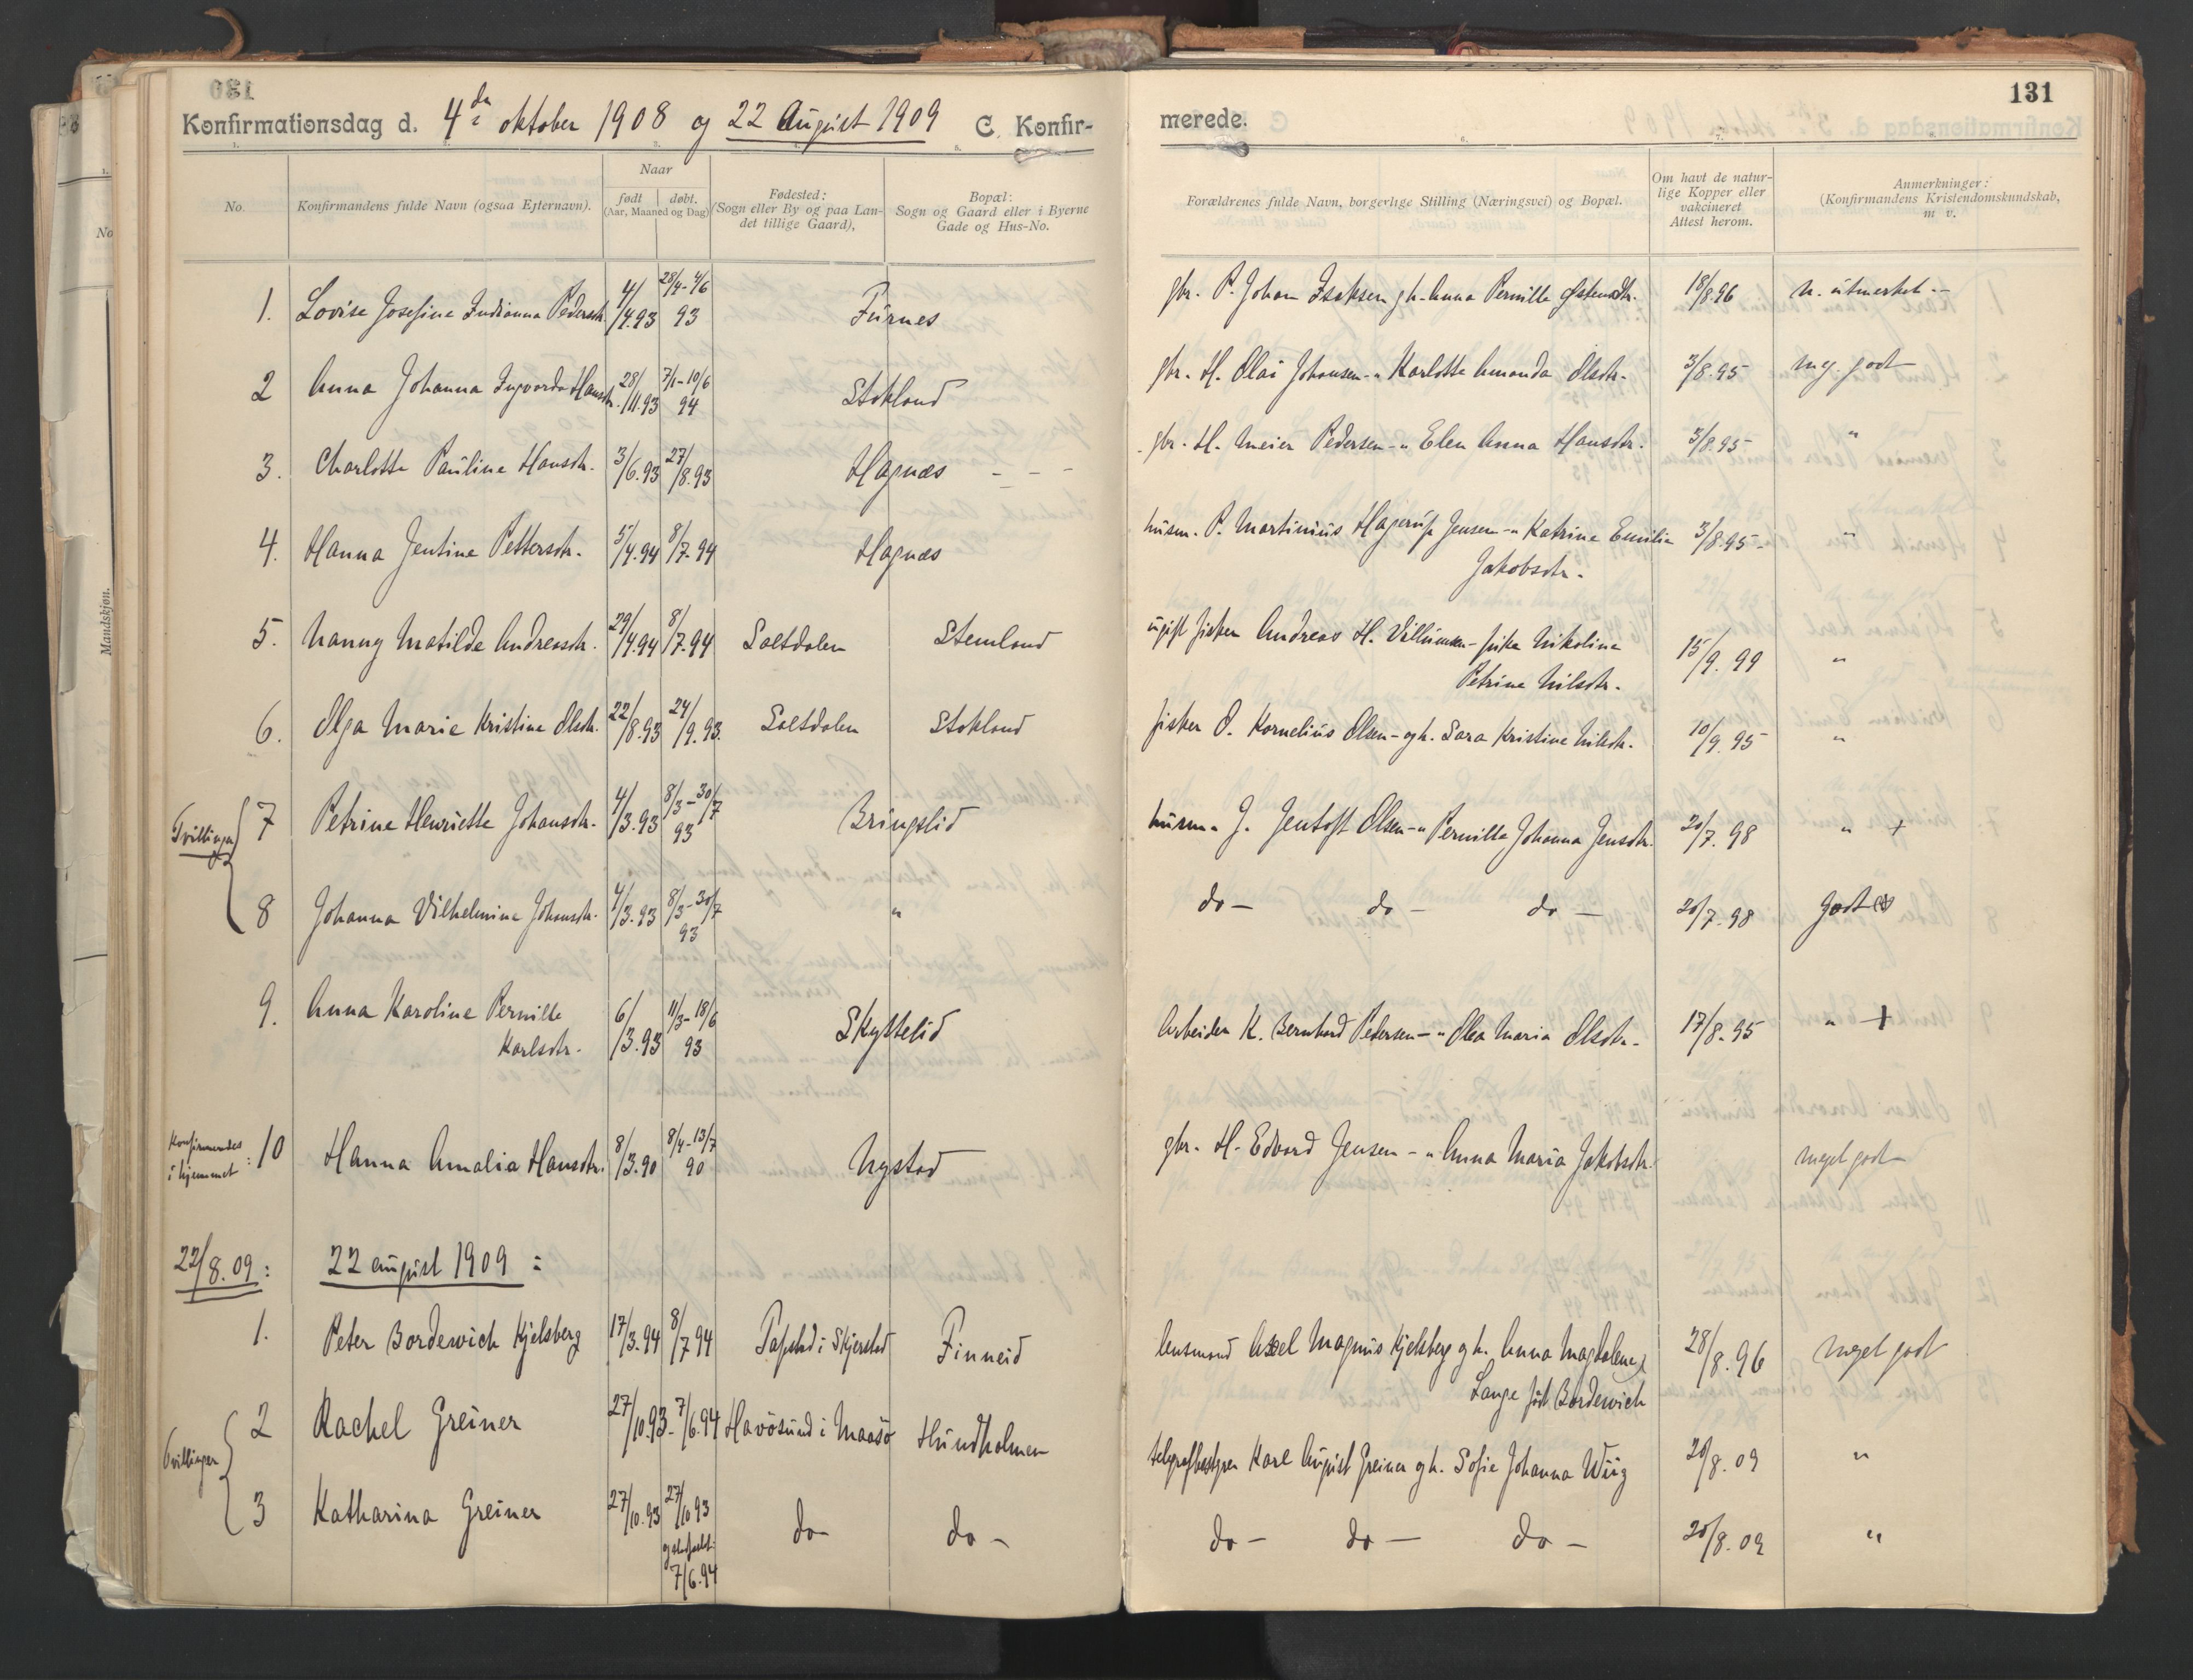 131
Konfirmationsdag d. 4de oktober 1908 og 22 August 1909 C. Konfir-
merede.
No.
Konfirmandens fulde Navn (ogsaa Efternavn).
Naar
født | døbt.
(Aar, Maaned og Dag)
Fødested:
(Sogn eller By og paa Lan-
det tillige Gaard),
Bopæl:
Sogn og Gaard eller i Byerne
Gade og Hus-No.
Forældrenes fulde Navn, borgerlige Stilling (Næringsvei) og Bopæl.
Om havt de natur-
lige Kopper eller
vakcineret
Attest herom.
Anmerkninger:
(Konfirmandens Kristendomskundskab,
m v.
1. Lovise Josefine Indianna Pedersdtr. 4/4.93 28/4-4/6 93 Furnes gbr. P. Johan Isaksen g h. Anna Pernille Østensdtr. 18/8.96 n. utmerket.-
2 Anna Johanna Ingvarda Hansdtr. 28/11.93 7/1-10/6 94 Stokland gbr. H. Olai Johansen - " Karlotte Amanda Olsdtr. 3/8.95 meg. godt
3. Charlotte Pauline Hansdtr. 3/6.93 27/8.93 Hagnæs - - - gbr. H. Meier Pedersen - " Elen Anna Hansdtr. 3/8.95 "
4. Hanna Jentine Pettersdtr. 5/4.94 8/7.94 Hagnæs husm. P. Martinius Hagerup Jensen - " Katrine Emilie 3/8.95 - "
Jakobsdtr.
5. Nanny Matilde Andreasdtr. 29/4.94 8/7.94 Saltdalen Stemland ugift fisker Andreas H. Villumsen - pike Nikoline 15/9.99 "
Petrine Nilsdtr.
6. Olga Marie Kristine Olsdtr. 22/8.93 24/9.93. Saltdalen Stokland fisker O. Kornelius Olsen - og h. Sara Kristine Nilsdtr. 10/9.95 "
Tvillinger
7 Petrine Henriette Johansdtr. 4/3.93 8/3-30/7 93 Bringslid husm. J. Jentoft Olsen - " Pernille Johanna Jensdtr. 20/7.98 " +
8 Johanna Vilhelmine Johansdtr. 4/3.93 8/3-30/7 93 " do - do - do - 20/7.98 godt
9. Anna Karoline Pernille
Karlsdtr. 6/3.93 11/3-18/6 93 Skyttelid Arbeider K. Bernhard Petersen - " Olea Maria Olsdtr. 17/8.95 " +
Konfirmeredes
i hjemmet :
10 Hanna Amalia Hansdtr. 8/3.90 8/4-13/7 90 Nystad gbr. H. Edvard Jensen - " Anna Maria Jakobsdtr. meget godt
22/8.09 : 22 august 1909 :
1. Peter Bordewich Kjelsberg 17/3.94 8/7 94 i Skjerstad Finneid lensmand Axel Magnus Kjelsberg g h. Anna Magdalene 28/8.96 meget godt
Lange født Bordewich
Tvillinger
2 Rachel Greiner 27/10.93 - 7/6.94 Havösund i Maasö Hundholmen telegrafbestyrer Karl August Greiner g h. Sofie Johanna Wiig 20/8.09 "
3 Katharina Greiner 27/10.93 27/10 93
7/6.94 do - do - do - do - do - 20/8.09 "
No
Mandskjøn.